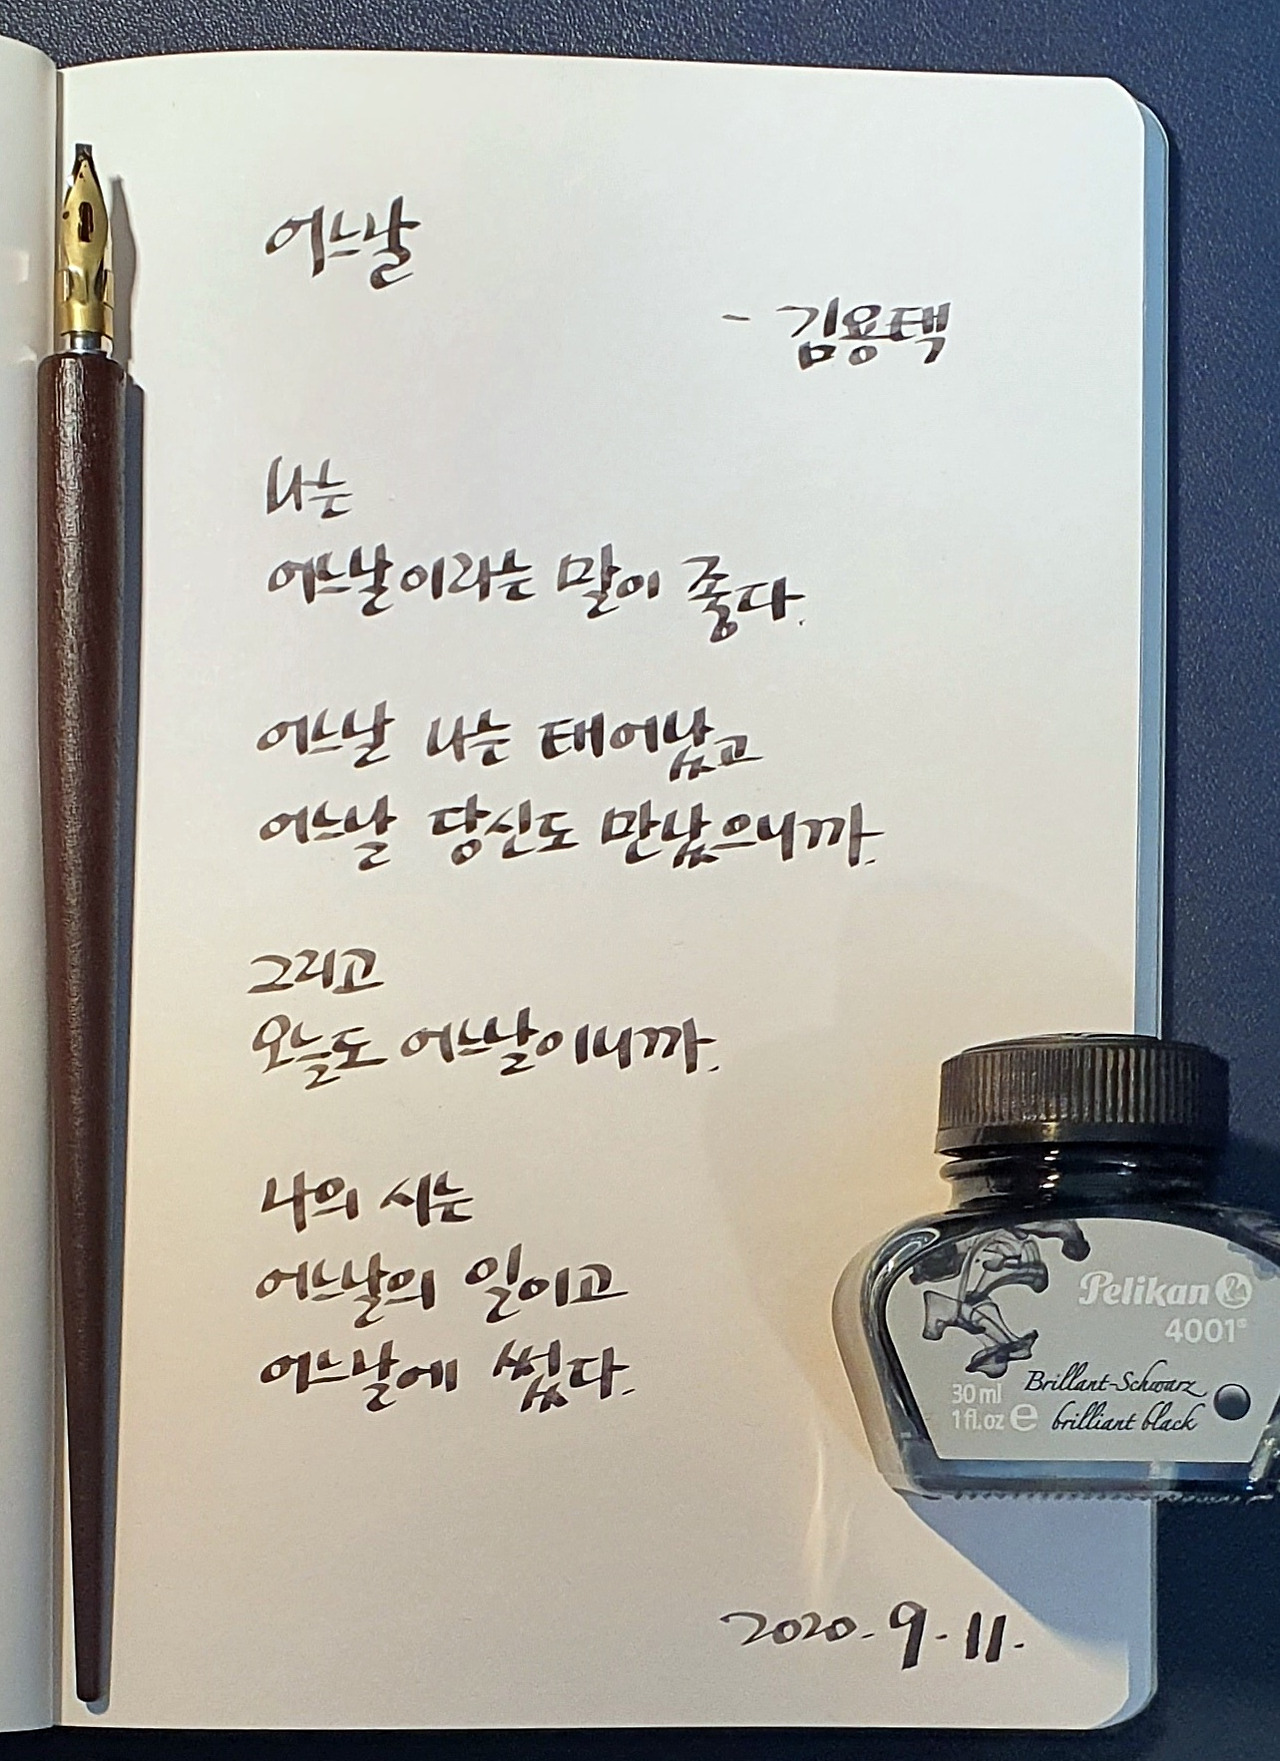 어느날
- 김용택
나는
어느날이라는 말이 좋다.
어느날 나는 태어났고
어느날 당신도 만났으니까.
그리고
오늘도 어느날이니까.
나의 시는
어느날의 일이고
어느날에 썼다.
Pelikan
4001®
Brillant-Schwarz
30 ml
1 fl.oz e brilliant black
2020. 9. 11.